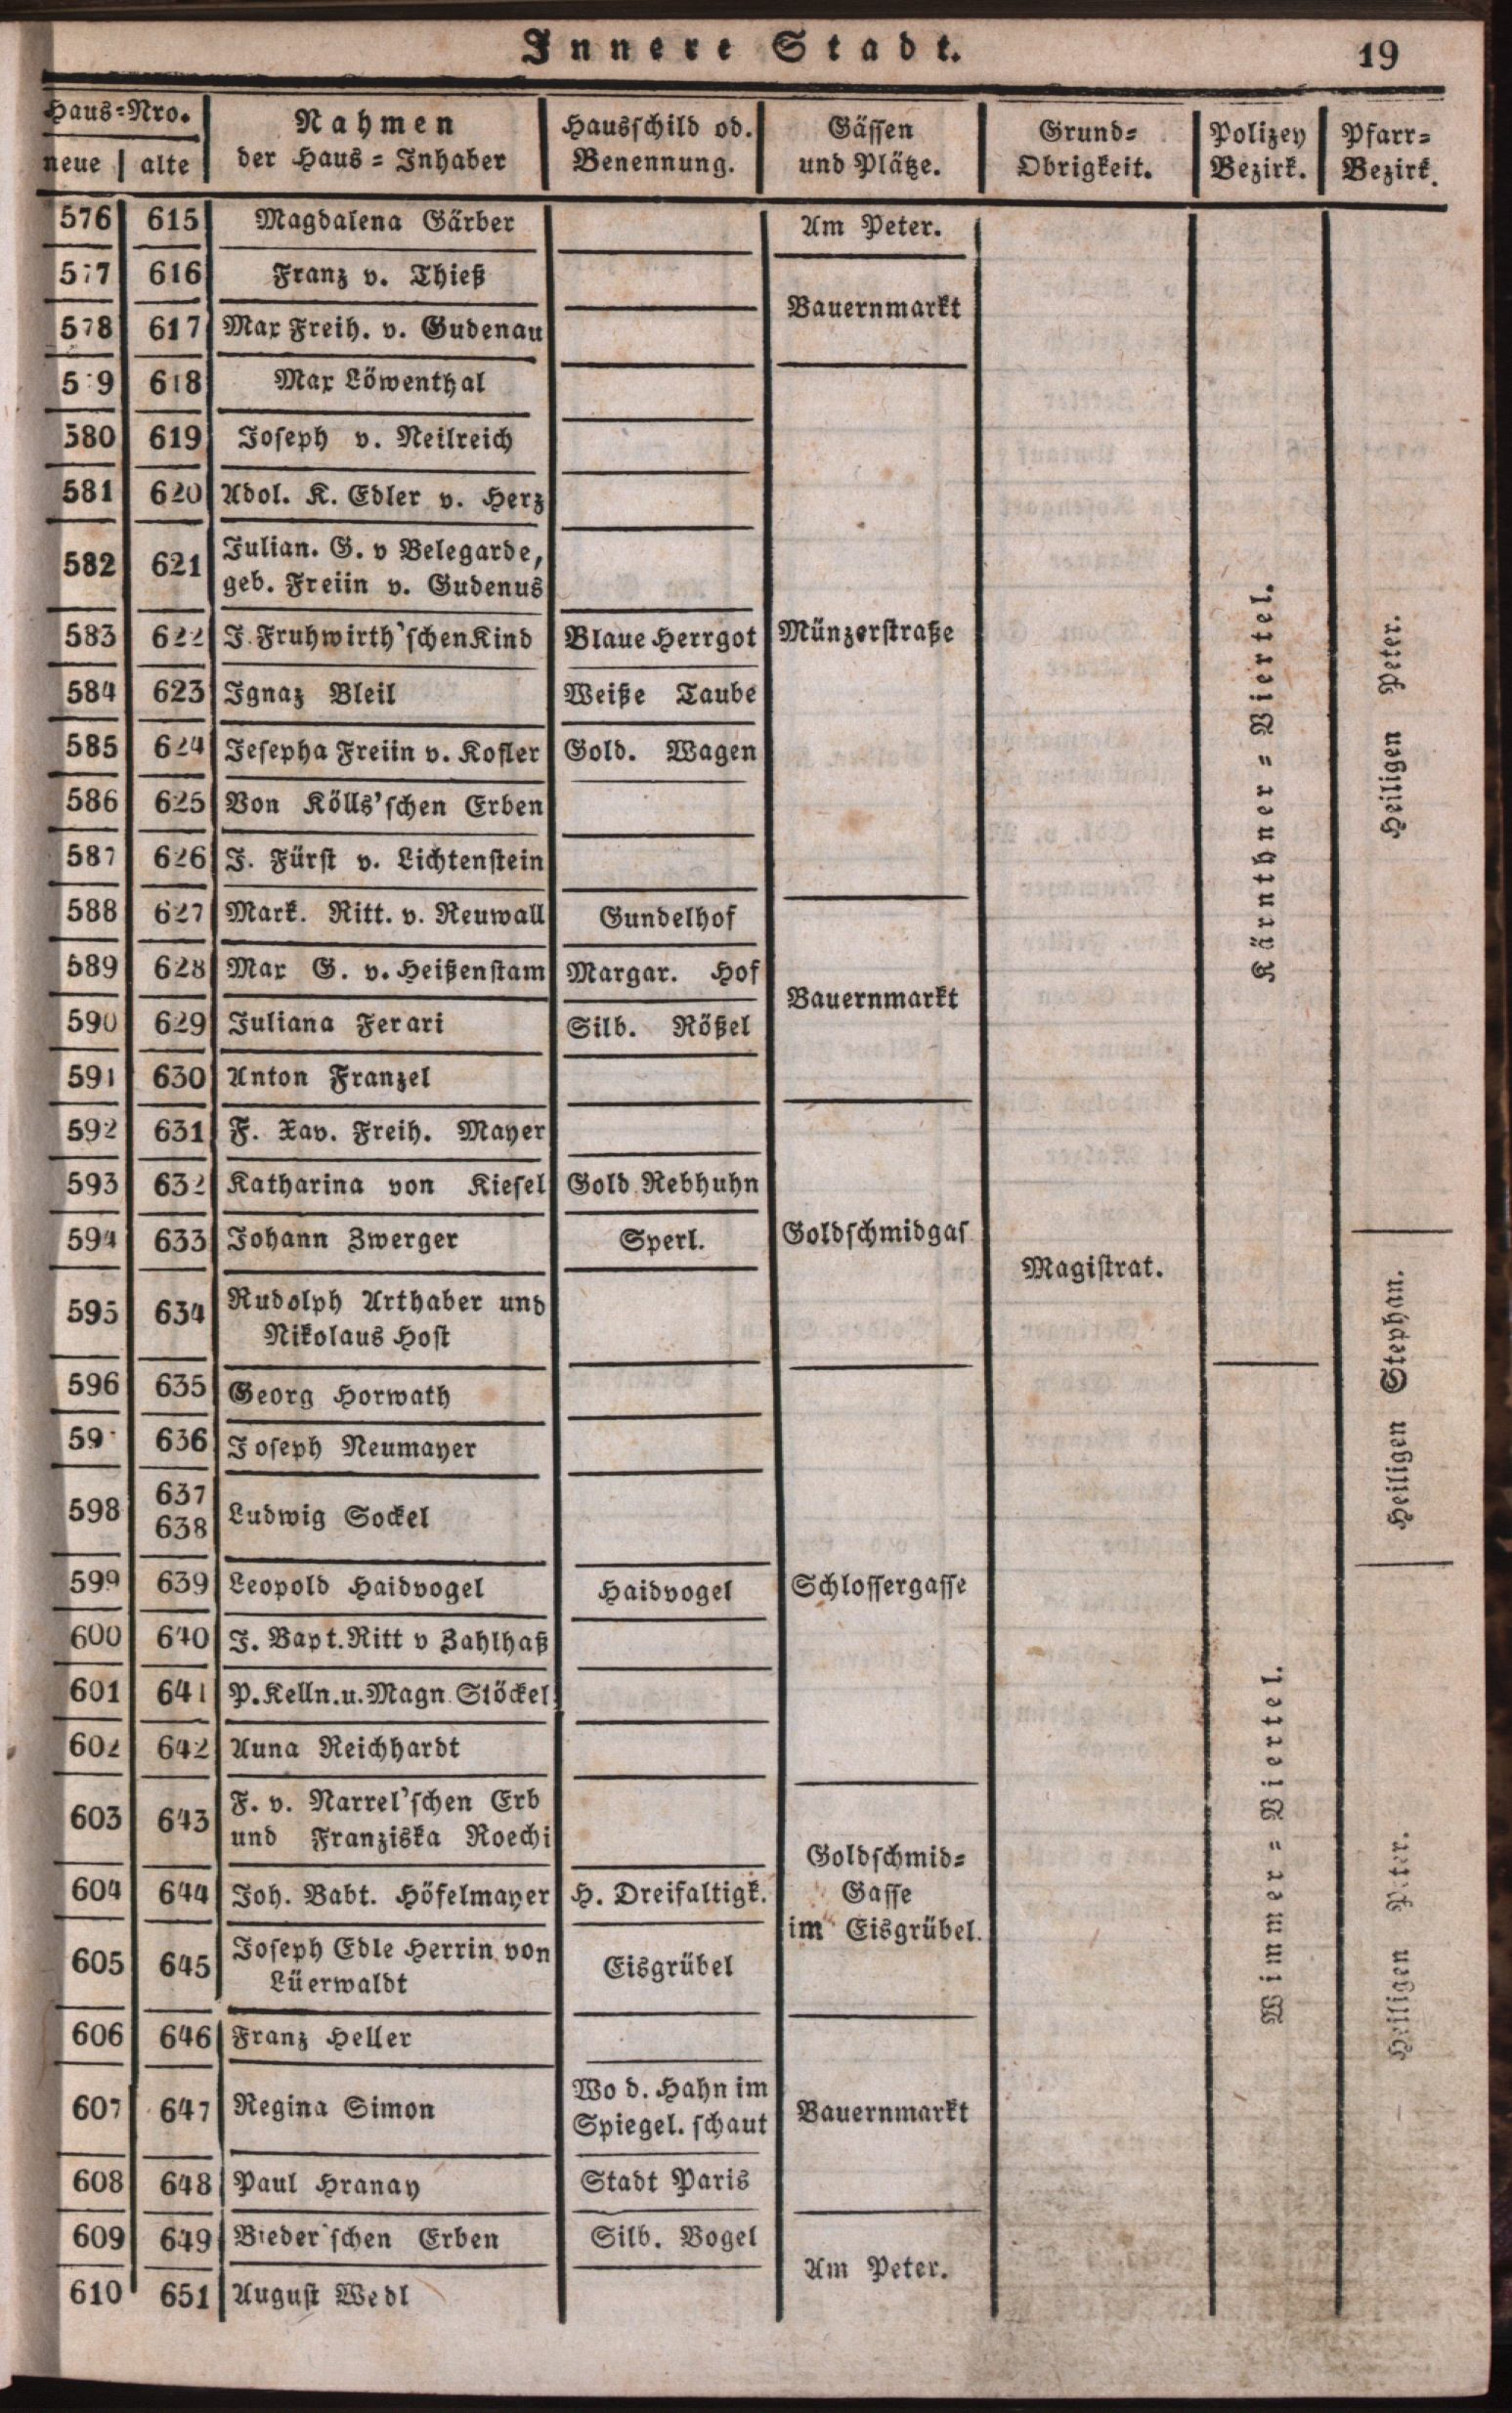 Innere Stadt.
19
Haus-Nro.
neue
alte
Nahmen
der Haus-Inhaber
Hausschild od.
Benennung.
Gässen
und Plätze.
Grund-
Obrigkeit.
Polizey
Bezirk.
Pfarr-
Bezirk.
576 615 Magdalena Gärber Am Peter.
577 616 Franz v. Thieß
Bauernmarkt
578 617 Max Freih. v. Gudenau
5 9 618 Max Löwenthal
580 619 Joseph v. Neilreich
581 620 Adol. K. Edler v. Herz
582 621 Julian. G. v Belegarde,
geb. Freiin v. Gudenus
583 622 J. Fruhwirth'schen Kind Blaue Herrgot Münzerstraße
584 623 Ignaz Bleil Weiße Taube
585 624 Jesepha Freiin v. Kofler Gold. Wagen
586 625 Von Kölls'schen Erben
587 626 J. Fürst v. Lichtenstein
588 627 Mark. Ritt. v. Neuwall Gundelhof
589 628 Max G. v. Heißenstam Margar. Hof
Bauernmarkt
590 629 Juliana Ferari Silb. Rößel
591 630 Anton Franzel
592 631 F. Xav. Freih. Mayer
593 632 Katharina von Kiesel Gold Rebhuhn
594 633 Johann Zwerger Sperl. Goldschmidgas
Magistrat.
595 634 Rudolph Arthaber und
Nikolaus Host
596 635 Georg Horwath
59 636 Joseph Neumayer
598 637
638 Ludwig Sockel
599 639 Leopold Haidvogel Haidvogel Schlossergasse
600 640 J. Bapt. Ritt v Zahlhaß
601 641 P. Kelln. u. Magn. Stöckel
602 642 Auna Reichhardt
603 643 F. v. Narrel'schen Erb
und Franziska Roechi
Goldschmid-
Gasse
im Eisgrübel.
604 644 Joh. Babt. Höfelmayer H. Dreifaltigk.
605 645 Joseph Edle Herrin von
Lüerwaldt
Eisgrübel
606 646 Franz Heller
607 647 Regina Simon Wo d. Hahn im
Spiegel. schaut
Bauernmarkt
608 648 Paul Hranay Stadt Paris
609 649 Bieder'schen Erben Silb. Vogel
Am Peter.
610 651 August Wedl
Kärnthner-Viertel.
Wimmer-Viertel.
Heiligen Peter.
Heiligen Stephan.
Heiligen Peter.